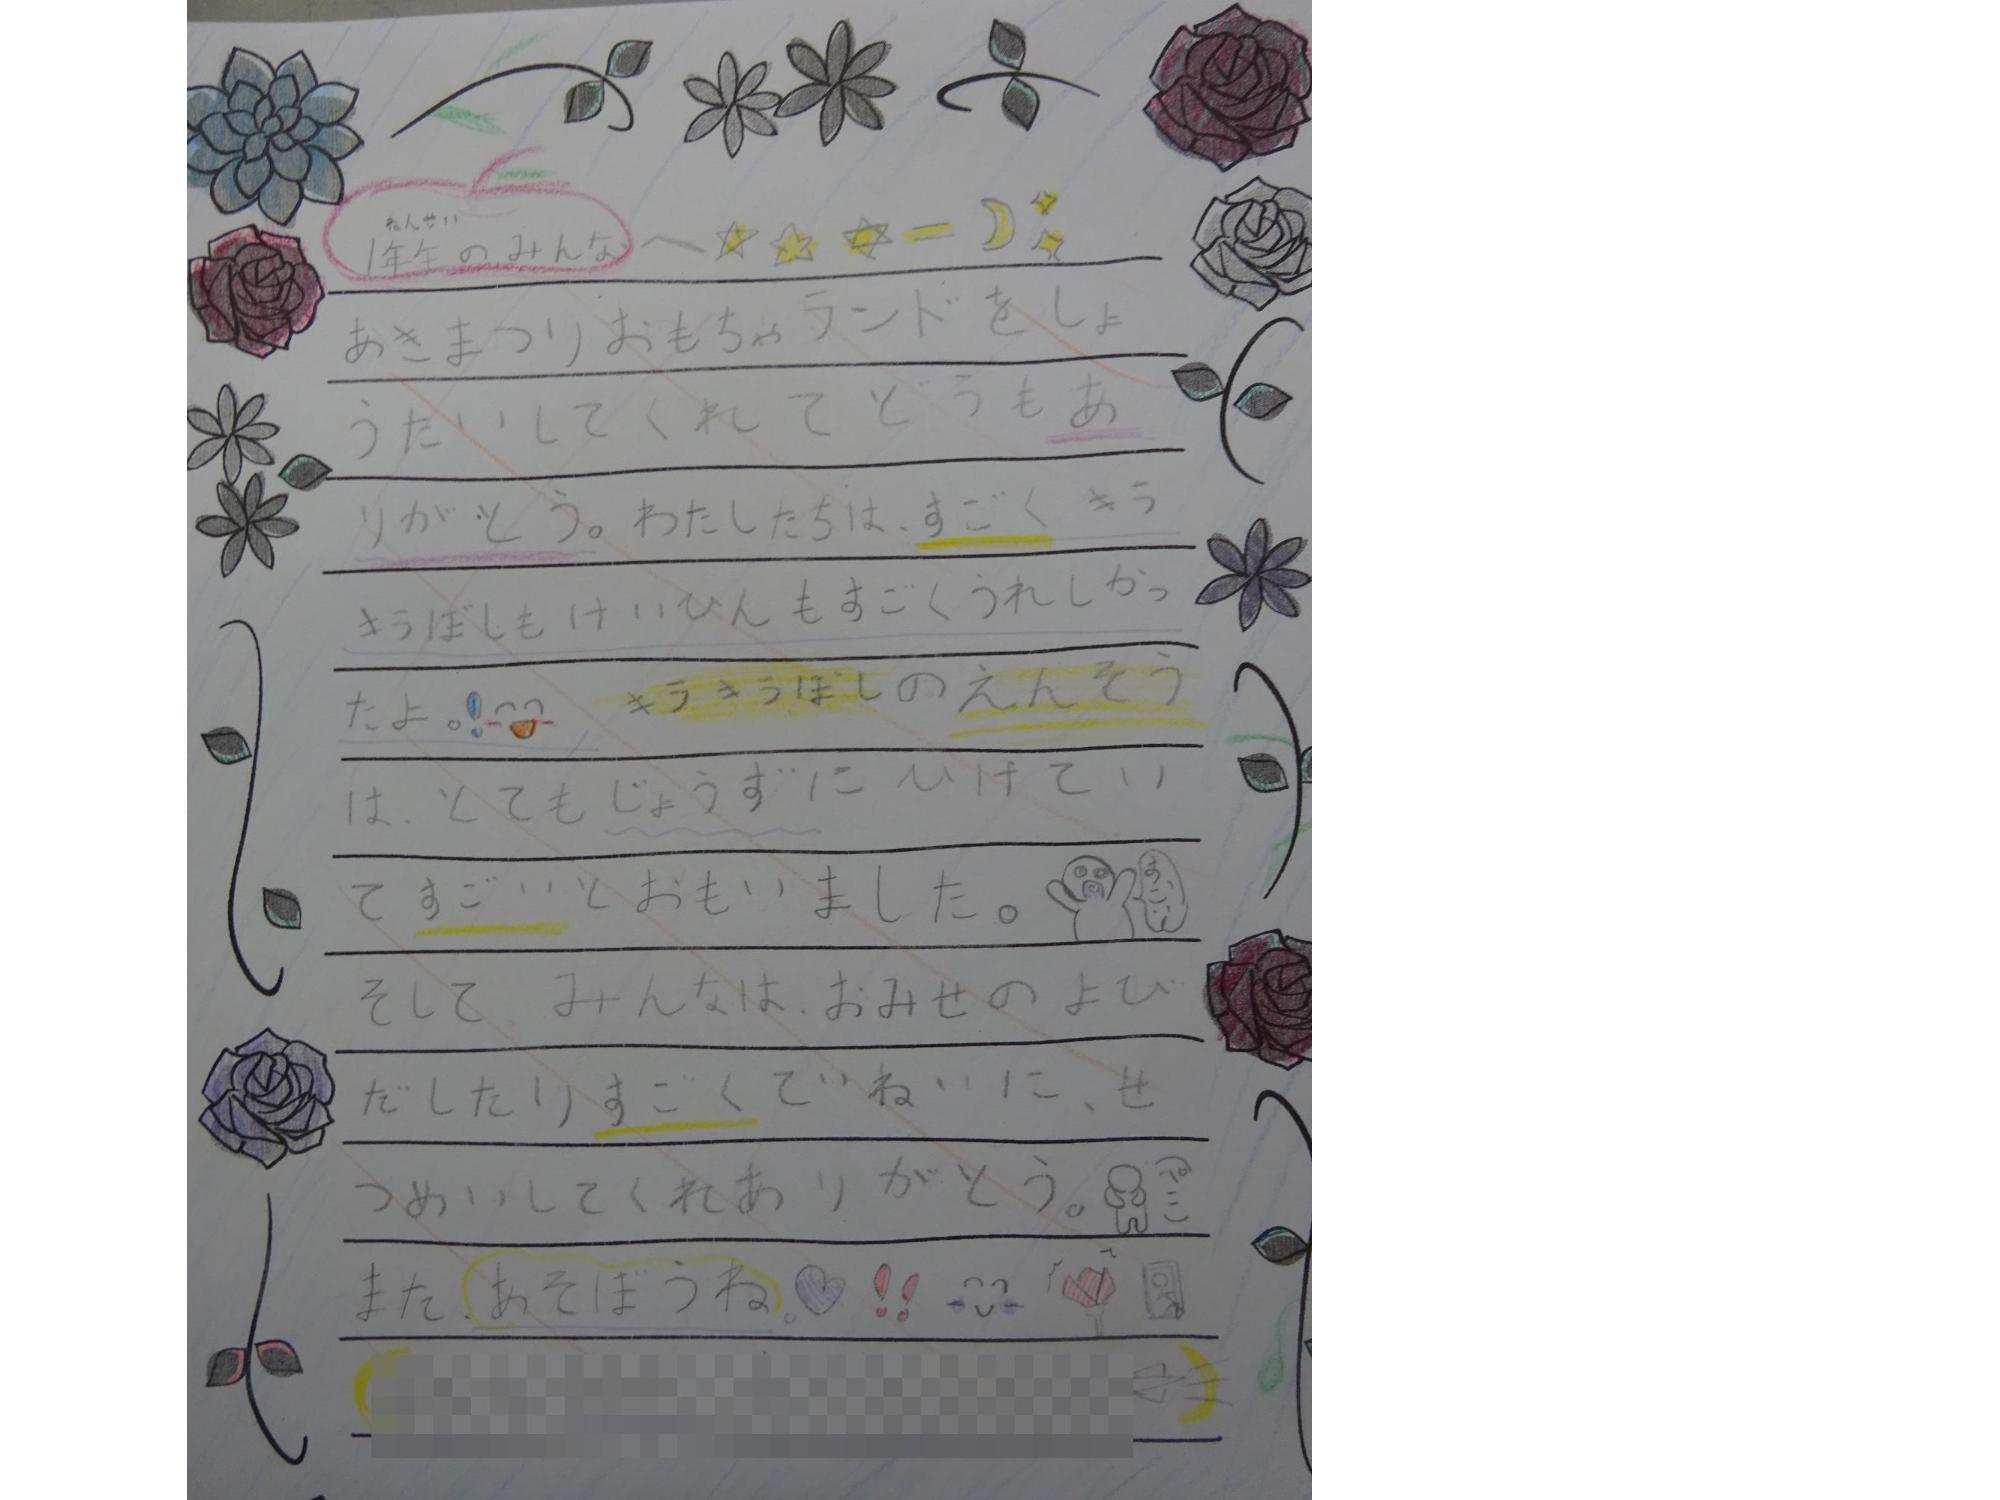 ねんせい
1年生のみんな
あきまつりおもちゃランドをしょ
うたいしてくれてどうもあ
りがとう。わたしたちは、すごくきら
きらぼしもけいひんもすごくうれしかっ
たよ。! きらきらぼしのえんそう
は、とてもじょうずにひけてい
てすごいとおもいました。 すごい
そして、みんなは、おみせのよび
だしたりすごくていねいに、せ
つめいしてくれありがとう。ぺこ
また、あそぼうね。!!